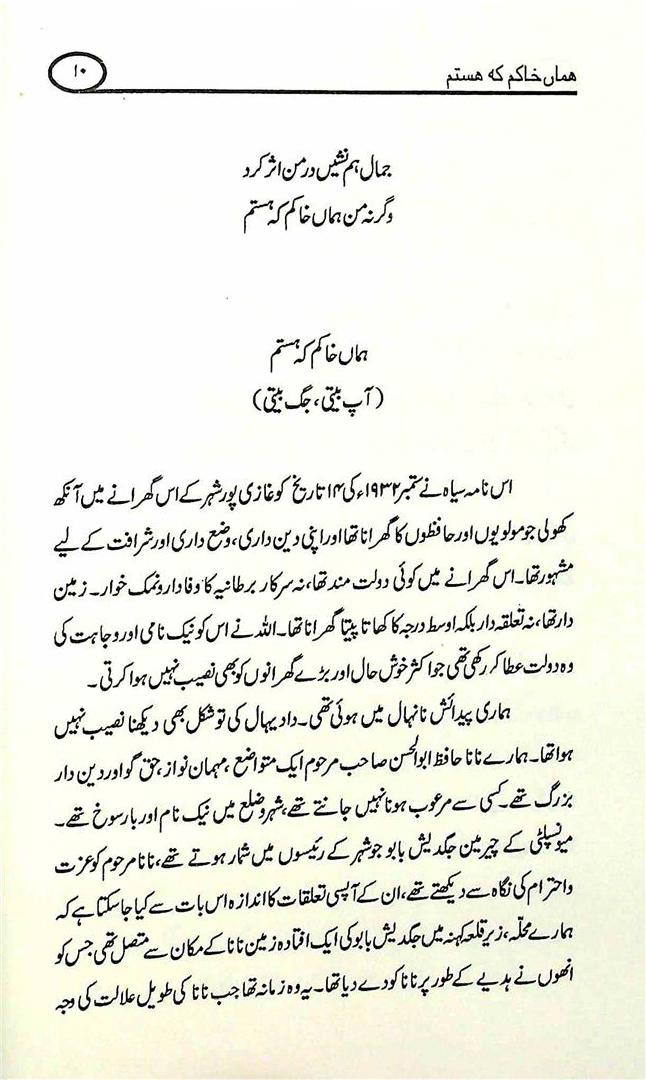 ھماں خاکم کہ ھستم
۱۰
جمال ہم نشیں در من اثر کرد
وگرنہ من ہماں خاکم کہ ہستم
ہماں خاکم کہ ہستم
(آپ بیتی، جگ بیتی)
اس نامہ سیاہ نے ستمبر ۱۹۳۲ء کی ۱۴ تاریخ کو غازی پور شہر کے اس گھرانے میں آنکھ
کھولی جو مولویوں اور حافظوں کا گھرانا تھا اور اپنی دین داری، وضع داری اور شرافت کے لیے
مشہور تھا۔ اس گھرانے میں کوئی دولت مند تھا، نہ سرکار برطانیہ کا وفادار و نمک خوار۔ زمین
دار تھا، نہ تعلقہ دار بلکہ اوسط درجہ کا کھاتا پیتا گھرانا تھا۔ اللہ نے اس کو نیک نامی اور وجاہت کی
وہ دولت عطا کر رکھی تھی جو اکثر خوش حال اور بڑے گھرانوں کو بھی نصیب نہیں ہوا کرتی۔
ہماری پیدائش نانہال میں ہوئی تھی۔ دادیہال کی تو شکل بھی دیکھنا نصیب نہیں
ہوا تھا۔ ہمارے نانا حافظ ابوالحسن صاحب مرحوم ایک متواضع، مہمان نواز، حق گو اور دین دار
بزرگ تھے۔ کسی سے مرعوب ہونا نہیں جانتے تھے، شہر و ضلع میں نیک نام اور بارسوخ تھے۔
میونسپلٹی کے چیرمین جگدیش بابو جو شہر کے رئیسوں میں شمار ہوتے تھے، نانا مرحوم کو عزت
واحترام کی نگاہ سے دیکھتے تھے، ان کے آپسی تعلقات کا اندازہ اس بات سے کیا جا سکتا ہے کہ
ہمارے محلّہ، زیر قلعہ کہنہ میں جگدیش بابو کی ایک افتادہ زمین نانا کے مکان سے متصل تھی جس کو
انھوں نے ہدیے کے طور پر نانا کو دے دیا تھا۔ یہ وہ زمانہ تھا جب نانا کی طویل علالت کی وجہ